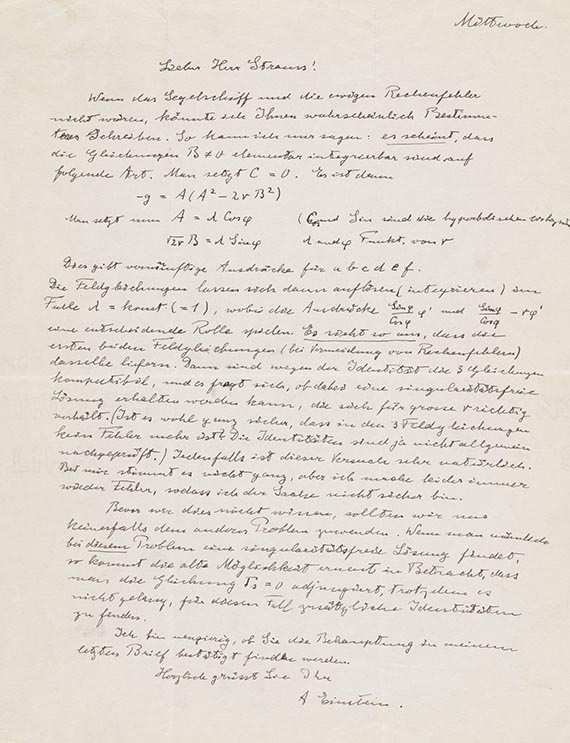 Mittwoch.
Lieber Herr Strauss!
Wenn das Segelschiff und die ewigen Rechenfehler
nicht wären, könnte ich Ihnen wahrscheinlich Bestimm-
teres schreiben. So kann ich nur sagen: es scheint, dass
die Gleichungen B ≠ 0 elementar integrierbar sind auf
folgende Art. Man setzt C = 0. Es ist dann
-g = A(A² - 2r B²)
Man setzt nun A = λ Cosφ (Cos und Sin sind die hyperbolischen
√2r B = λ Sinφ λ und φ Funkt. von r
Dies gibt vernünftige Ausdrücke für a b c d e f.
Die Feldgleichungen lassen sich dann auflösen (integrieren) im
Falle λ = konst (= 1), wobei die Ausdrücke Sinφ/Cosφ φ' und Sinφ/Cosφ - rφ'
eine entscheidende Rolle spielen. Es sieht so aus, dass die
ersten beiden Feldgleichungen (bei Vermeidung von Rechenfehlern)
dasselbe liefern. Dann sind wegen der Identität die 3 Gleichungen
kompatibel, und es fragt sich, ob dabei eine singularitätsfreie
Lösung erhalten werden kann, die sich für grosse r richtig
verhält. (Ist es wohl ganz sicher, dass in den 3 Feldgleichungen
kein Fehler mehr ist? Die Identitäten sind ja nicht allgemein
nachgeprüft.) Jedenfalls ist dieser Versuch sehr natürlich.
Bei mir stimmt es nicht ganz, aber ich mache leider immer
wieder Fehler, sodass ich der Sache nicht sicher bin.
Bevor wir dies nicht wissen, sollten wir uns
keinesfalls dem anderen Problem zuwenden. Wenn man nämlich
bei diesem Problem eine singularitätsfreie Lösung findet,
so kommt die alte Möglichkeit erneut in Betracht, dass
man die Gleichung Γs = 0 adjungiert, trotzdem es
nicht gelang, für diesen Fall zusätzliche Identitäten
zu finden.
Ich bin neugierig, ob Sie die Behauptung in meinem
letzten Brief bestätigt finden werden.
Herzlich grüsst Sie Ihr
A Einstein.